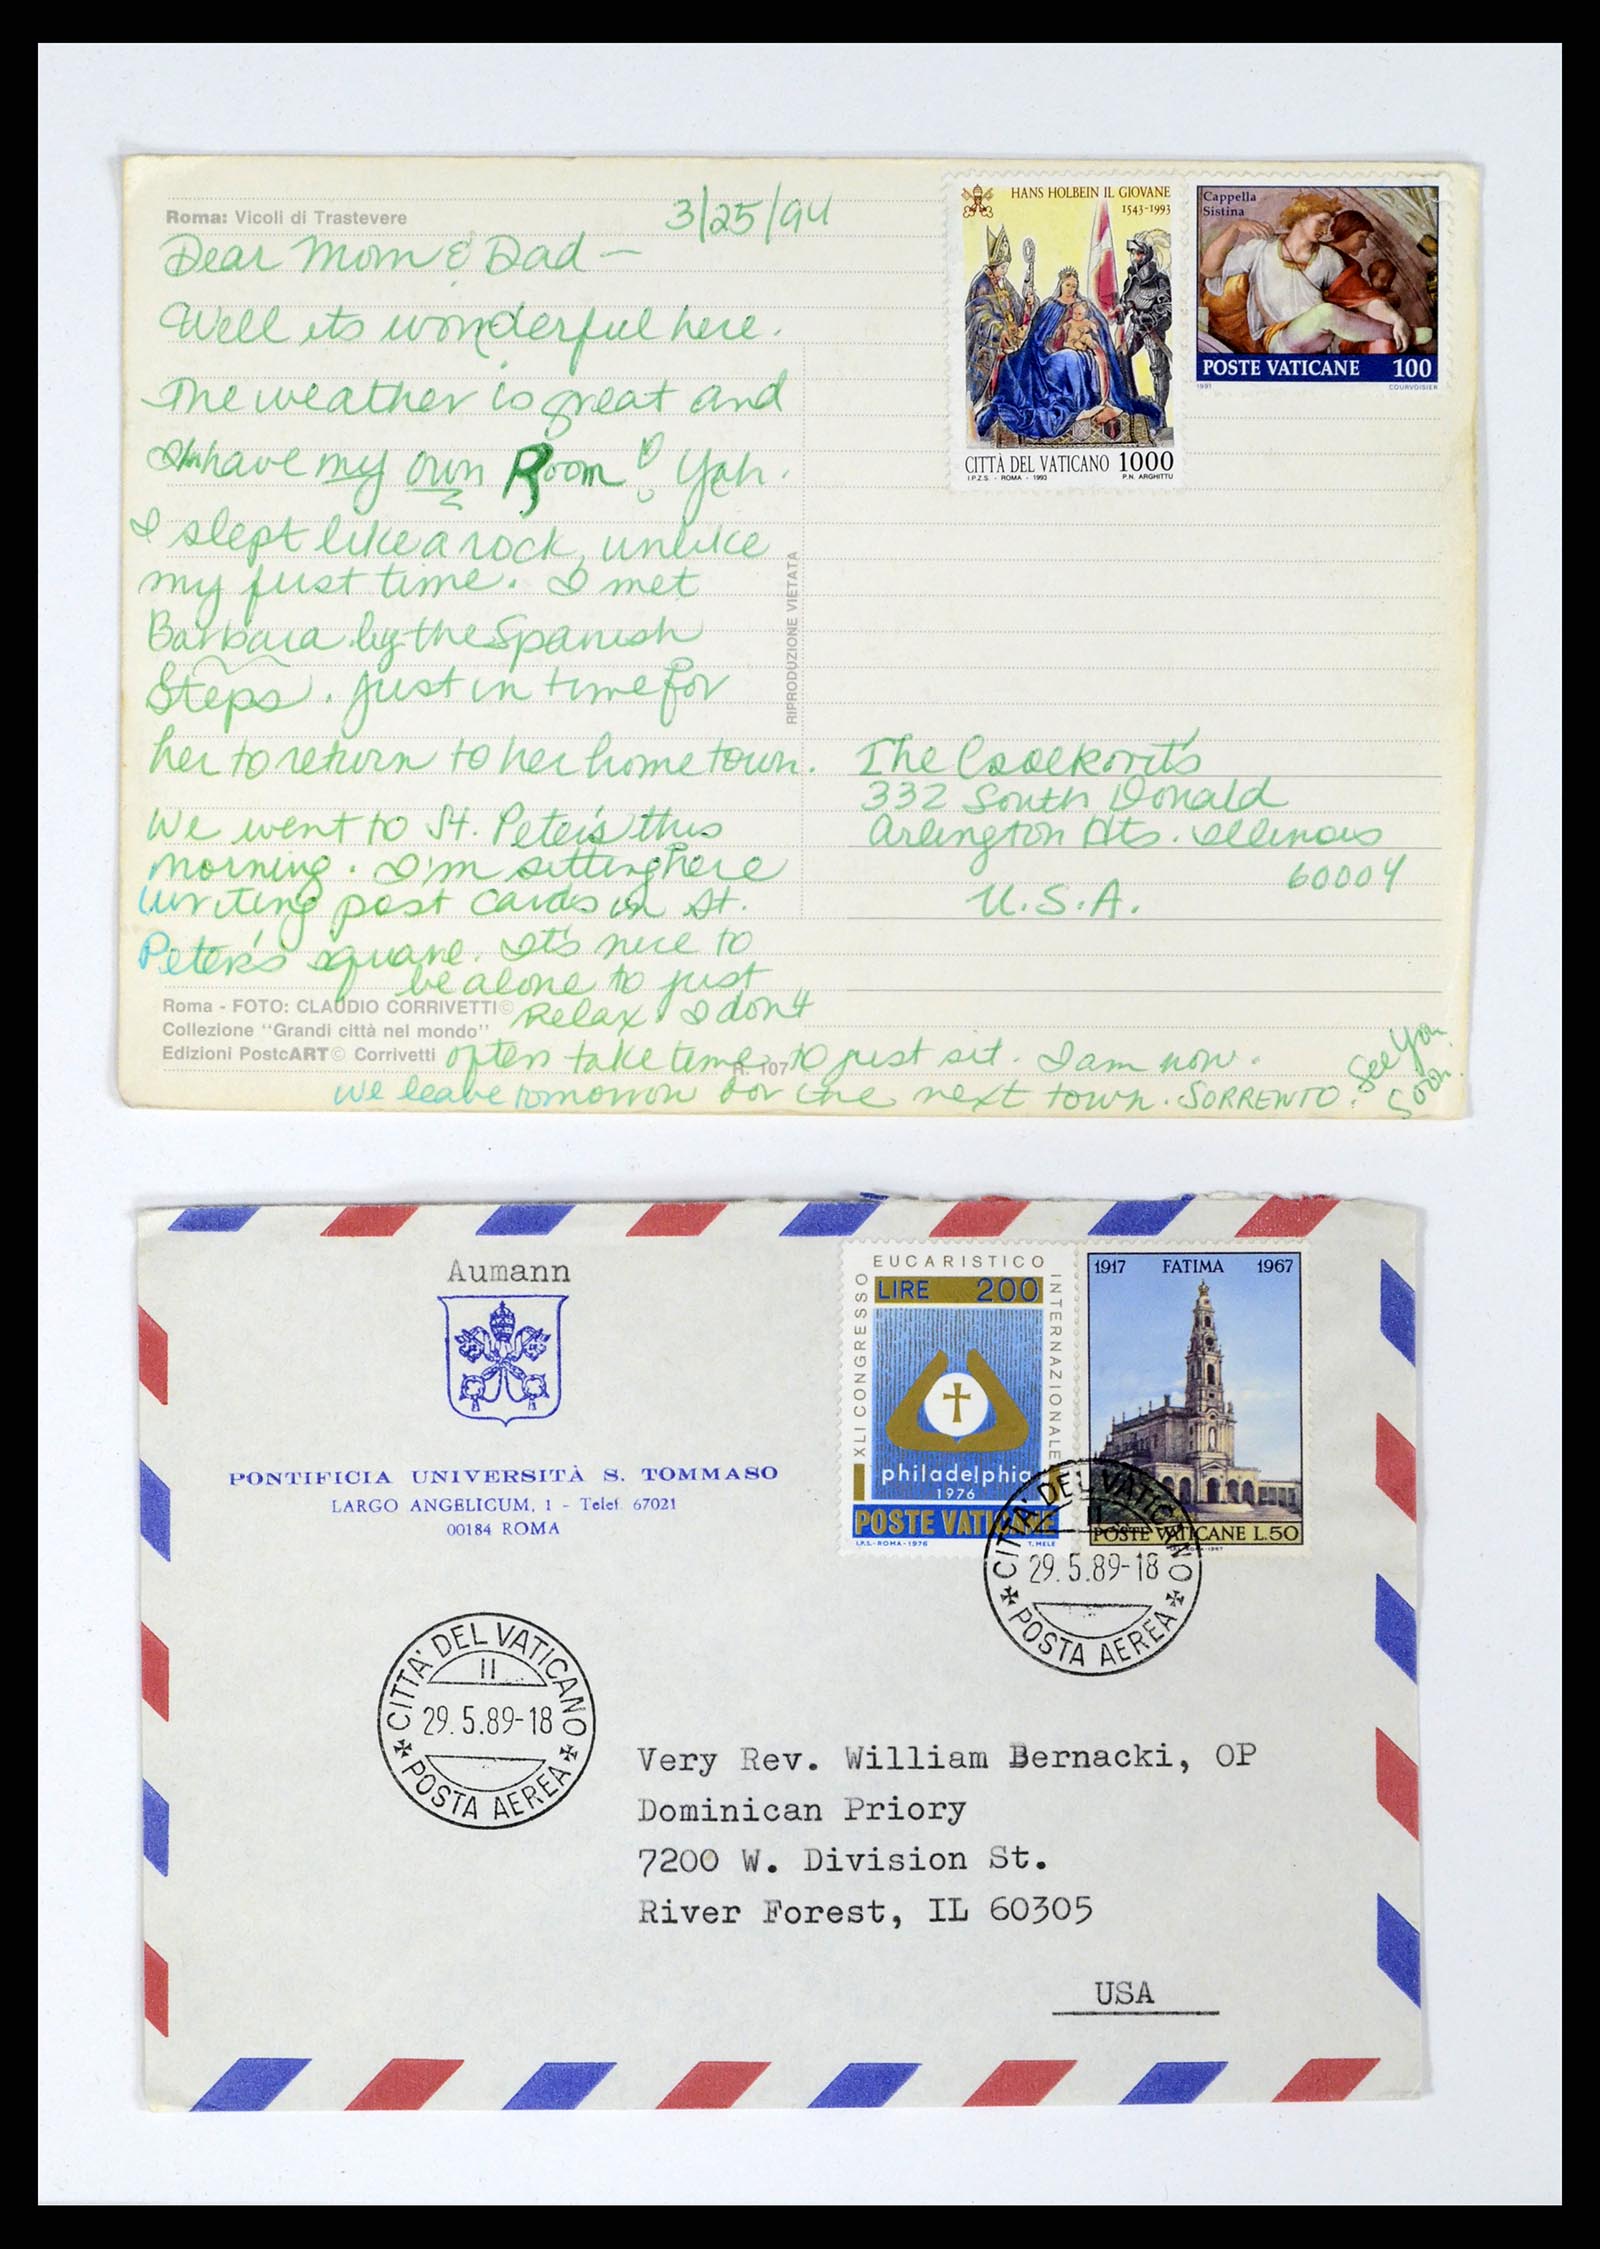 Roma: Vicoli di Trastevere
3/25/94
Dear Mom & Dad —
Well its wonderful here.
The weather is great and
I have my own Room! Yah.
I slept like a rock, unlike
my first time. I met
Barbara by the Spanish
Steps. just in time for
her to return to her home town.
We went to St. Peter's this
morning. I'm sitting here
writing post cards in St.
Peter's square. It's nice to
be alone to just
Relax. I don't
often take time to just sit. I am now.
we leave tomorrow for the next town. SORRENTO.
See You
Soon.
Roma - FOTO: CLAUDIO CORRIVETTI©
Collezione "Grandi città nel mondo"
Edizioni PostcART© Corrivetti
R. 107
RIPRODUZIONE VIETATA
HANS HOLBEIN IL GIOVANE
1543-1993
CITTÀ DEL VATICANO 1000
I.P.Z.S. - ROMA - 1993 P.N. ARGHITTU
Cappella
Sistina
POSTE VATICANE 100
1991 COURVOISIER
The
332 South Donald
Arlington Hts. Illinois
60004
U.S.A.
Aumann
PONTIFICIA UNIVERSITÀ S. TOMMASO
LARGO ANGELICUM, 1 - Telef. 67021
00184 ROMA
XLI CONGRESSO
EUCARISTICO
INTERNAZIONALE
LIRE 200
philadelphia
1976
POSTE VATICANE
I.P.S.-ROMA-1976 T. MELE
1917 FATIMA 1967
POSTE VATICANE L.50
CITTA' DEL VATICANO
II
29.5.89-18
POSTA AEREA
CITTA' DEL VATICANO
II
29.5.89-18
POSTA AEREA
Very Rev. William Bernacki, OP
Dominican Priory
7200 W. Division St.
River Forest, IL 60305
USA